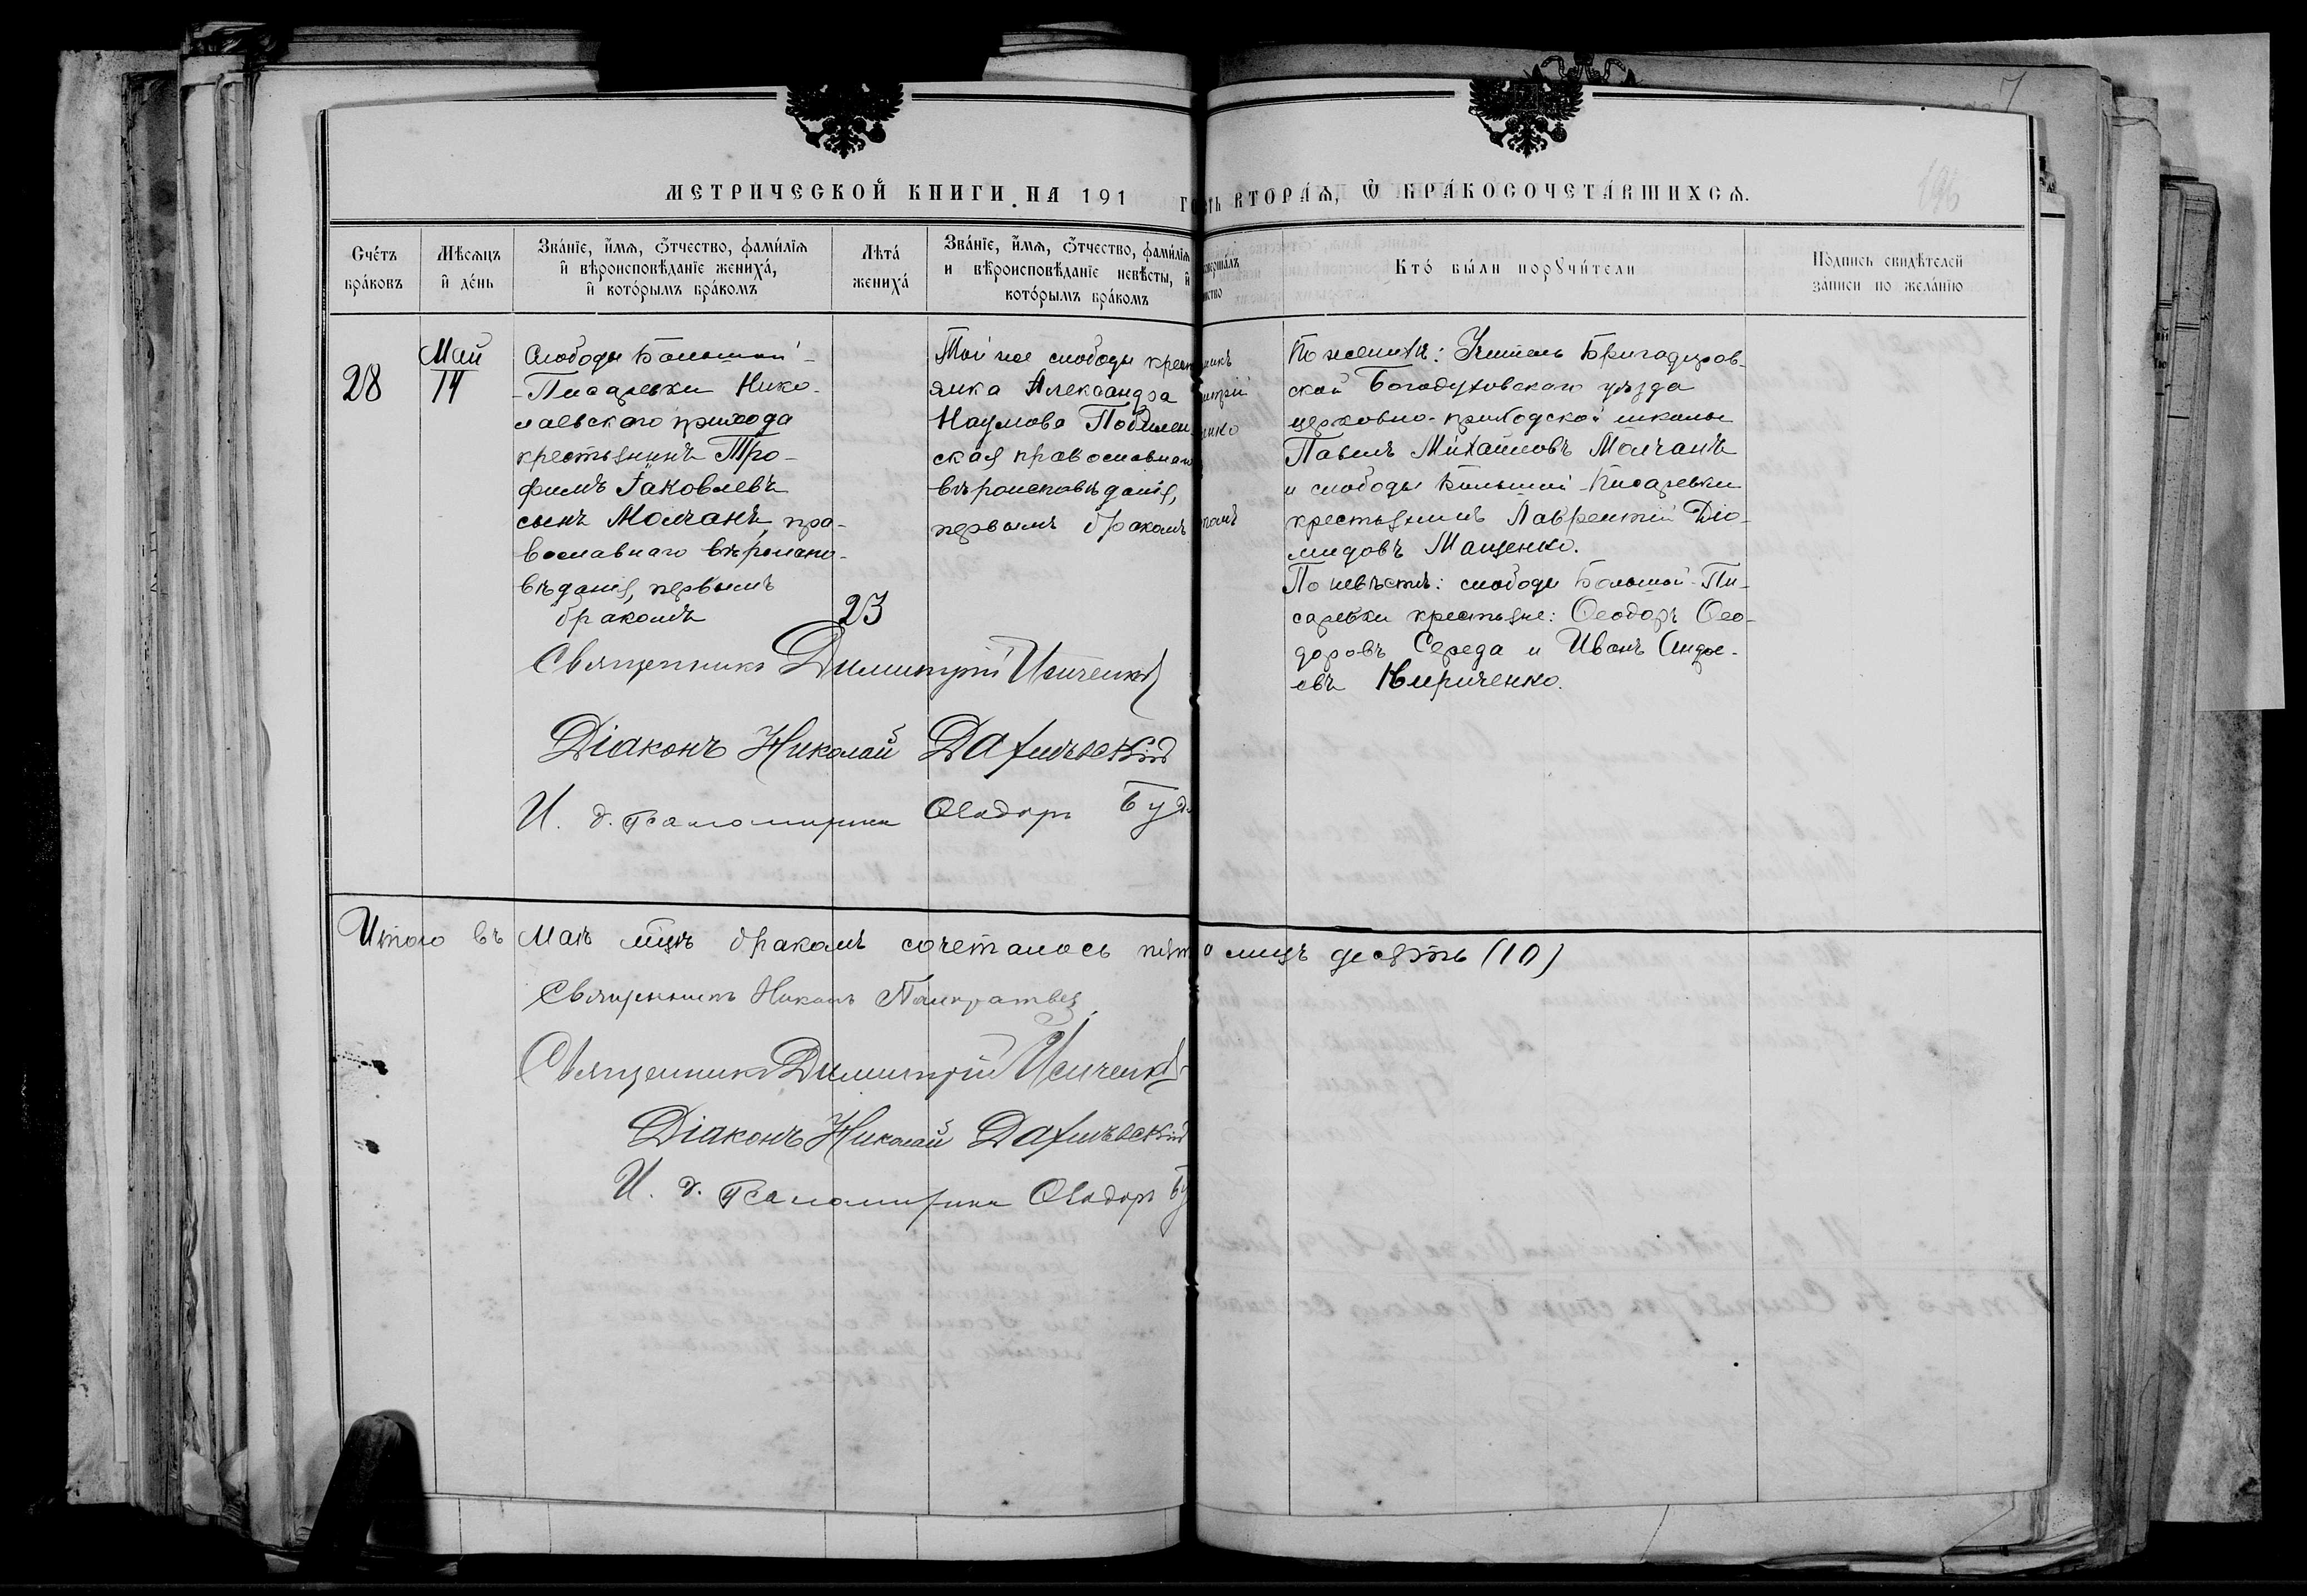 МЕТРИЧЕСКОЙ КНИГИ НА 191
ВТОРАѦ, Ѿ БРАКОСОЧЕТАВШИХСѦ.
196
Счетъ браковъ
Мѣсяцъ и день
Званіе, имя, отчество, фамилія и вѣроисповѣданіе жениха, и которымъ бракомъ
Лѣта жениха
Званіе, имя, отчество, фамилія и вѣроисповѣданіе невѣсты, и которымъ бракомъ
Кто были поручители
Подпись свидѣтелей записи по желанію
28
Май
14
Слободы Большой-
-Писаревки Нико-
лаевскаго прихода
крестьянинъ Тро-
фимъ Іаковлевъ
сынъ Молчанъ, пра-
вославнаго вѣроиспо-
вѣданія, первымъ
бракомъ
23
Той же слободы крест
янка Александра
Наумова
ская православнаго
вѣроисповѣданія,
первымъ бракомъ
По женихѣ: Учитель Бригадиров-
ской Богодуховскаго уѣзда
церковно-приходской школы
Павелъ Михаиловъ Молчанъ
и слободы Большой-Писаревки
крестьянинъ Лаврентій Діо-
мидовъ Мащенко.
По невѣстѣ: слободы Большой-Пи-
саревки крестьяне: Ѳеодоръ Ѳео-
доровъ Середа и Иванъ Андре-
евъ Кириченко.
Священникъ Димитрій Исиченко
Діаконъ Николай
И. д. псаломщика Ѳеодоръ
Итого въ Маѣ мцѣ бракомъ сочеталось лицъ десять (10)
Священникъ Никонъ
Священникъ Димитрій Исиченко
Діаконъ Николай
И. д. Псаломщика Ѳеодоръ